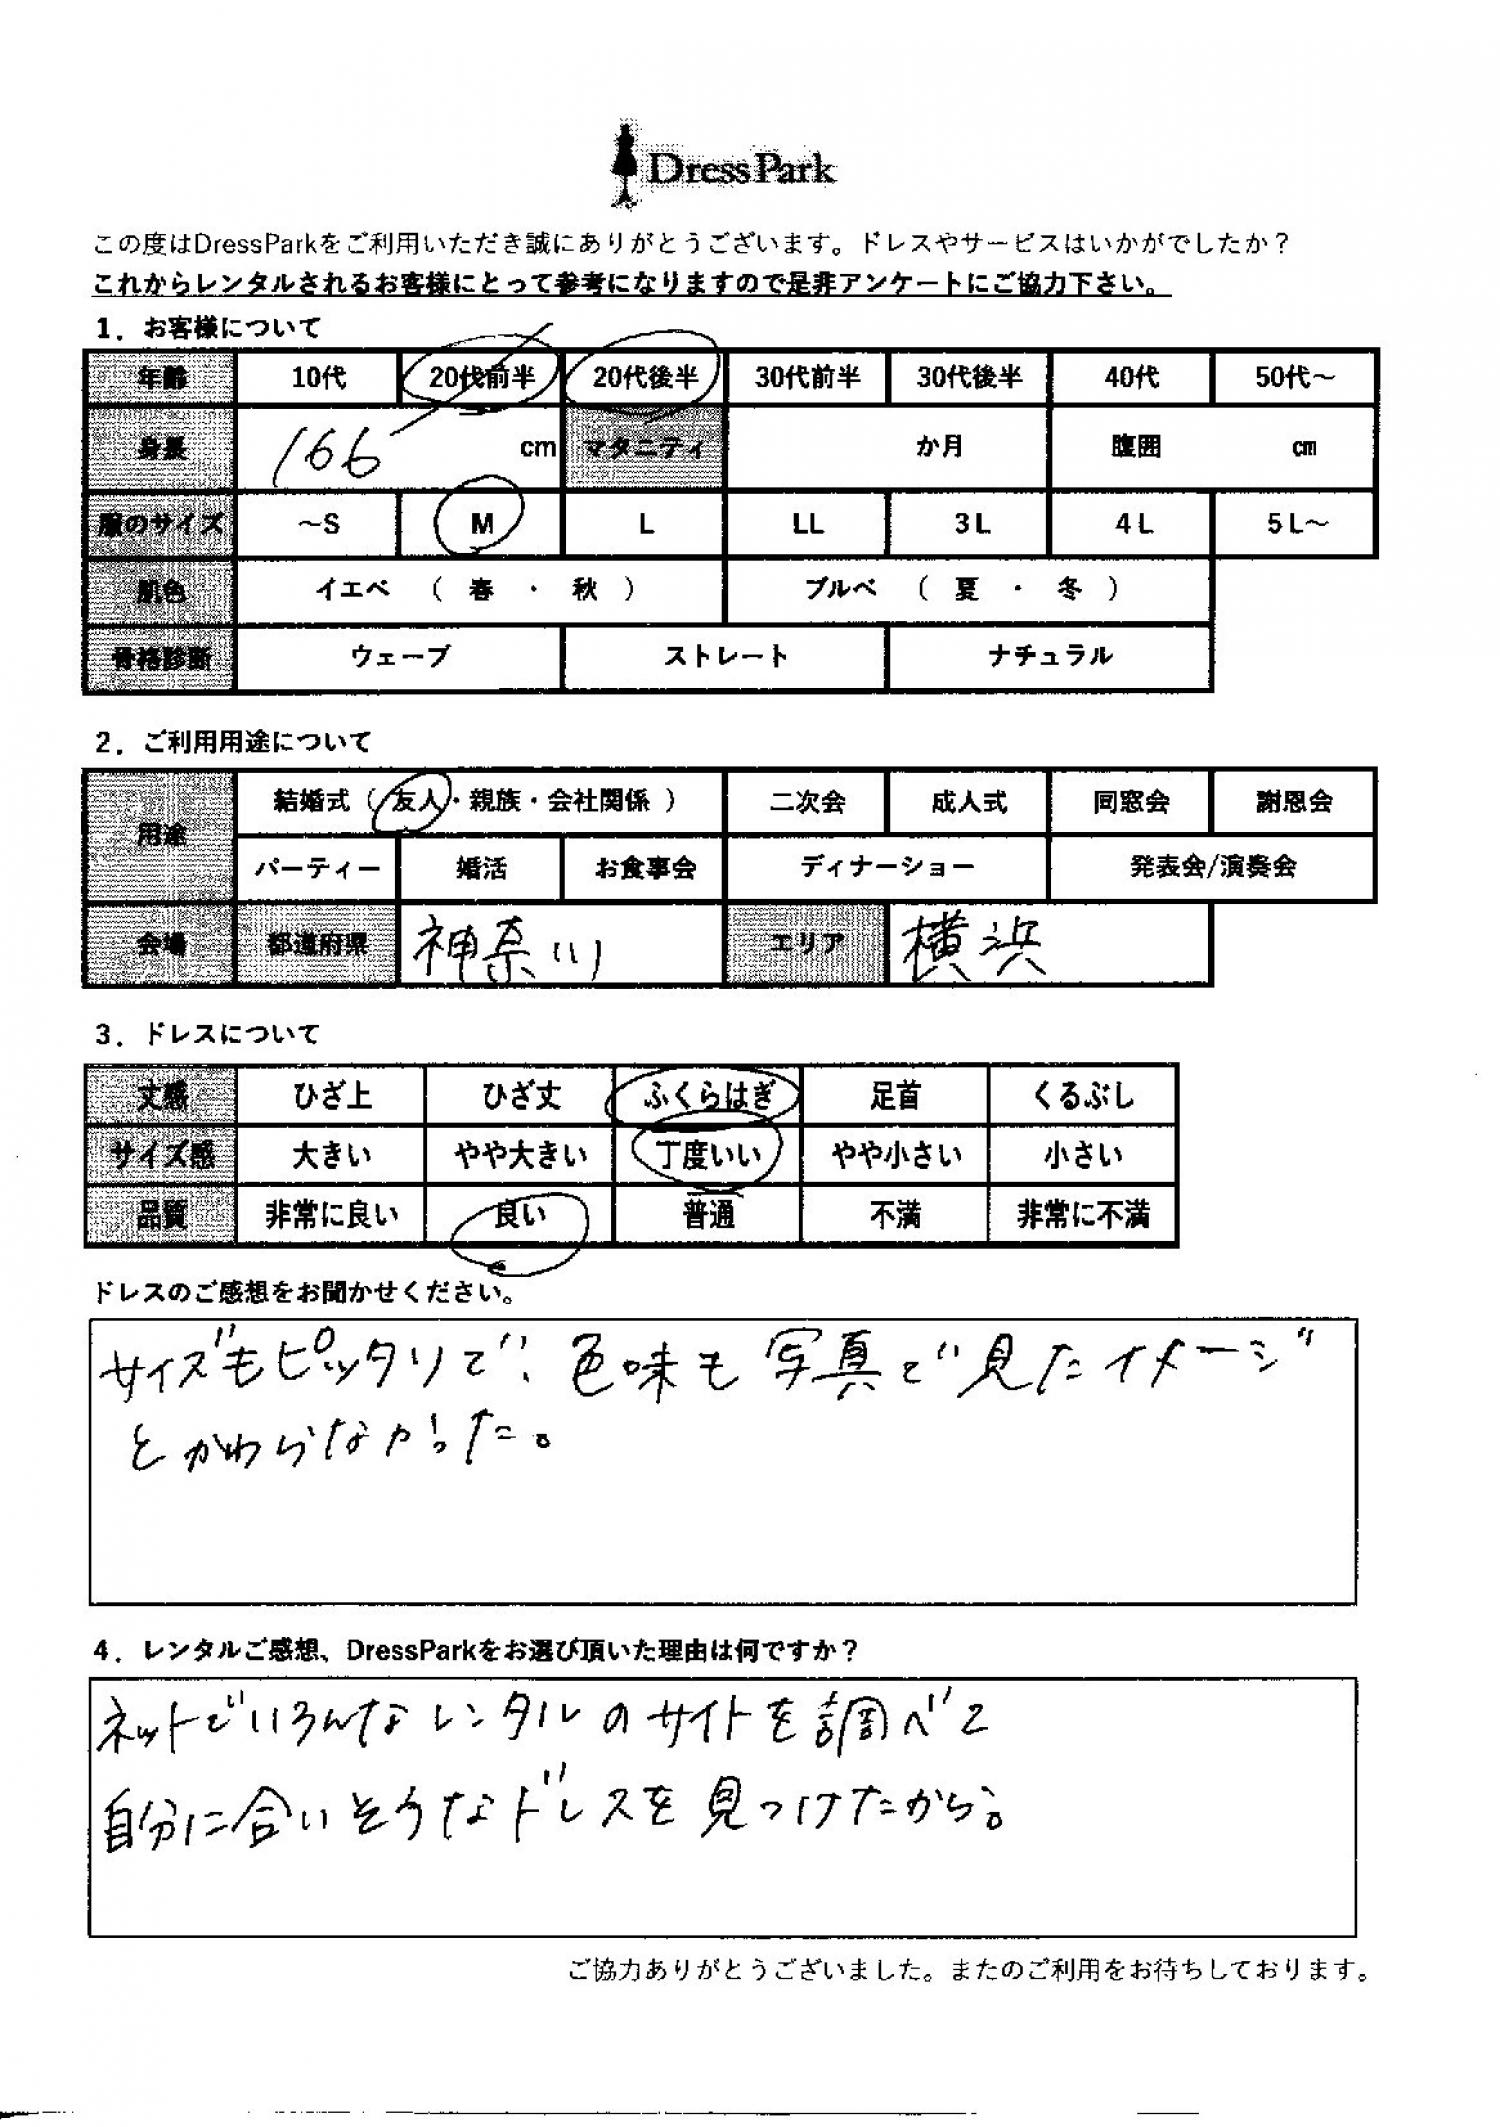 DressPark
この度はDressParkをご利用いただき誠にありがとうございます。ドレスやサービスはいかがでしたか？
これからレンタルされるお客様にとって参考になりますので是非アンケートにご協力下さい。
1．お客様について
年齢 10代 20代前半 20代後半 30代前半 30代後半 40代 50代～
身長 166 cm マタニティ か月 腹囲 cm
服のサイズ ～S M L LL 3L 4L 5L～
肌色 イエベ （ 春 ・ 秋 ） ブルベ （ 夏 ・ 冬 ）
骨格診断 ウェーブ ストレート ナチュラル
2．ご利用用途について
用途 結婚式（ 友人・親族・会社関係 ） 二次会 成人式 同窓会 謝恩会
パーティー 婚活 お食事会 ディナーショー 発表会/演奏会
会場 都道府県 神奈川 エリア 横浜
3．ドレスについて
丈感 ひざ上 ひざ丈 ふくらはぎ 足首 くるぶし
サイズ感 大きい やや大きい 丁度いい やや小さい 小さい
品質 非常に良い 良い 普通 不満 非常に不満
ドレスのご感想をお聞かせください。
サイズもピッタリで、色味も写真で見たイメージ
とかわらなかった。
4．レンタルご感想、DressParkをお選び頂いた理由は何ですか？
ネットでいろんなレンタルのサイトを調べて
自分に合いそうなドレスを見つけたから。
ご協力ありがとうございました。またのご利用をお待ちしております。